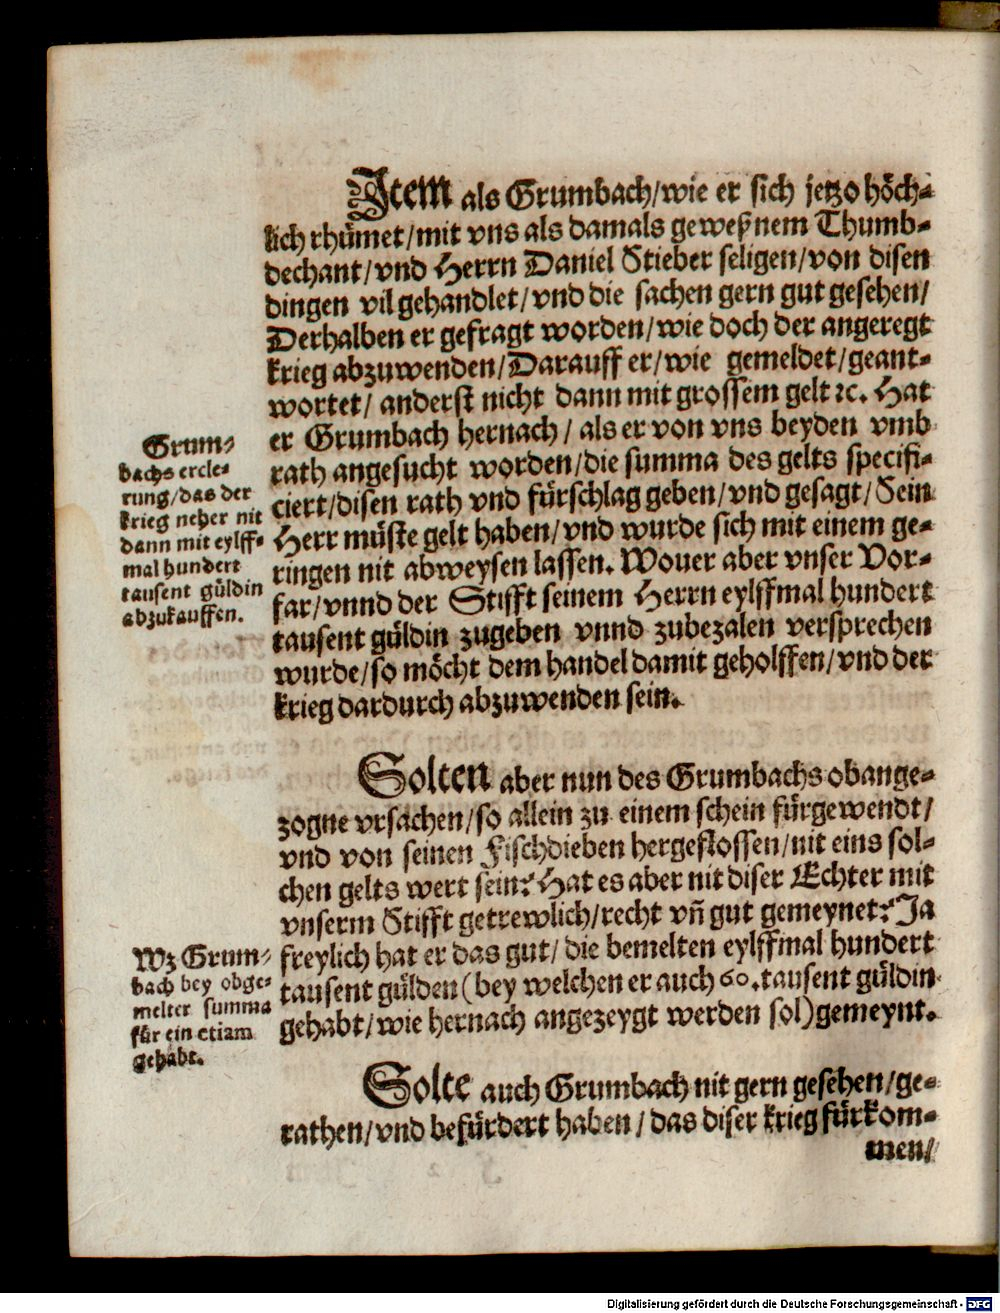 Item als Grumbach/wie er sich jetzo höch-
lich rhümet/mit vns als damals geweßnem Thumb-
dechant/vnd Herrn Daniel Stieber seligen/von disen
dingen vil gehandlet/vnd die sachen gern gut gesehen/
Derhalben er gefragt worden/wie doch der angeregt
krieg abzuwenden/Darauff er/wie gemeldet/geant-
wortet/ anderst nicht dann mit grossem gelt ꝛc. Hat
er Grumbach hernach/ als er von vns beyden vmb
rath angesucht worden/die summa des gelts specifi-
ciert/disen rath vnd fürschlag geben/vnd gesagt/Sein
Herr müste gelt haben/vnd wurde sich mit einem ge-
ringen nit abweysen lassen. Wouer aber vnser Vor-
far/vnnd der Stifft seinem Herrn eylffmal hundert
tausent güldin zugeben vnnd zubezalen versprechen
wurde/so möcht dem handel damit geholffen/vnd der
krieg dardurch abzuwenden sein.
Grum-
bachs ercle-
rung/das der
krieg neher nit
dann mit eylff-
mal hundert
tausent güldin
abzukauffen.
Solten aber nun des Grumbachs obange-
zogne vrsachen/so allein zu einem schein fürgewendt/
vnd von seinen Fischdieben hergeflossen/nit eins sol-
chen gelts wert sein? Hat es aber nit diser Echter mit
vnserm Stifft getrewlich/recht vñ gut gemeynet? Ja
freylich hat er das gut/ die bemelten eylffmal hundert
tausent gülden (bey welchen er auch 60. tausent güldin
gehabt/wie hernach angezeygt werden sol) gemeynt.
Wz Grum-
bach bey obge-
melter summa
für ein etiam
gehabt.
Solte auch Grumbach nit gern gesehen/ge-
rathen/vnd befürdert haben/das diser krieg fürkom-
men/
Digitalisierung gefördert durch die Deutsche Forschungsgemeinschaft - DFG